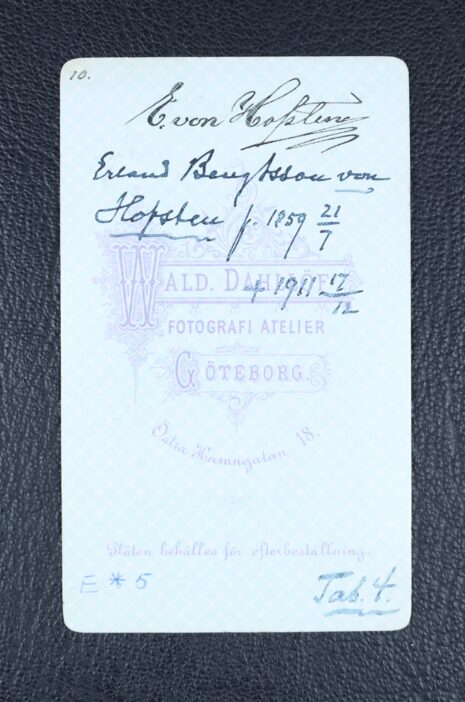 10.
E. von Hofsten
Erland Bengtsson von
Hofsten f. 1859 21/7
WALD. DAHLLÖF
† 1911 17/12
FOTOGRAFI ATELIER
GÖTEBORG.
Östra Hamngatan 18.
Plåten behålles för efterbeställning.
E * 5
Tab. 4.